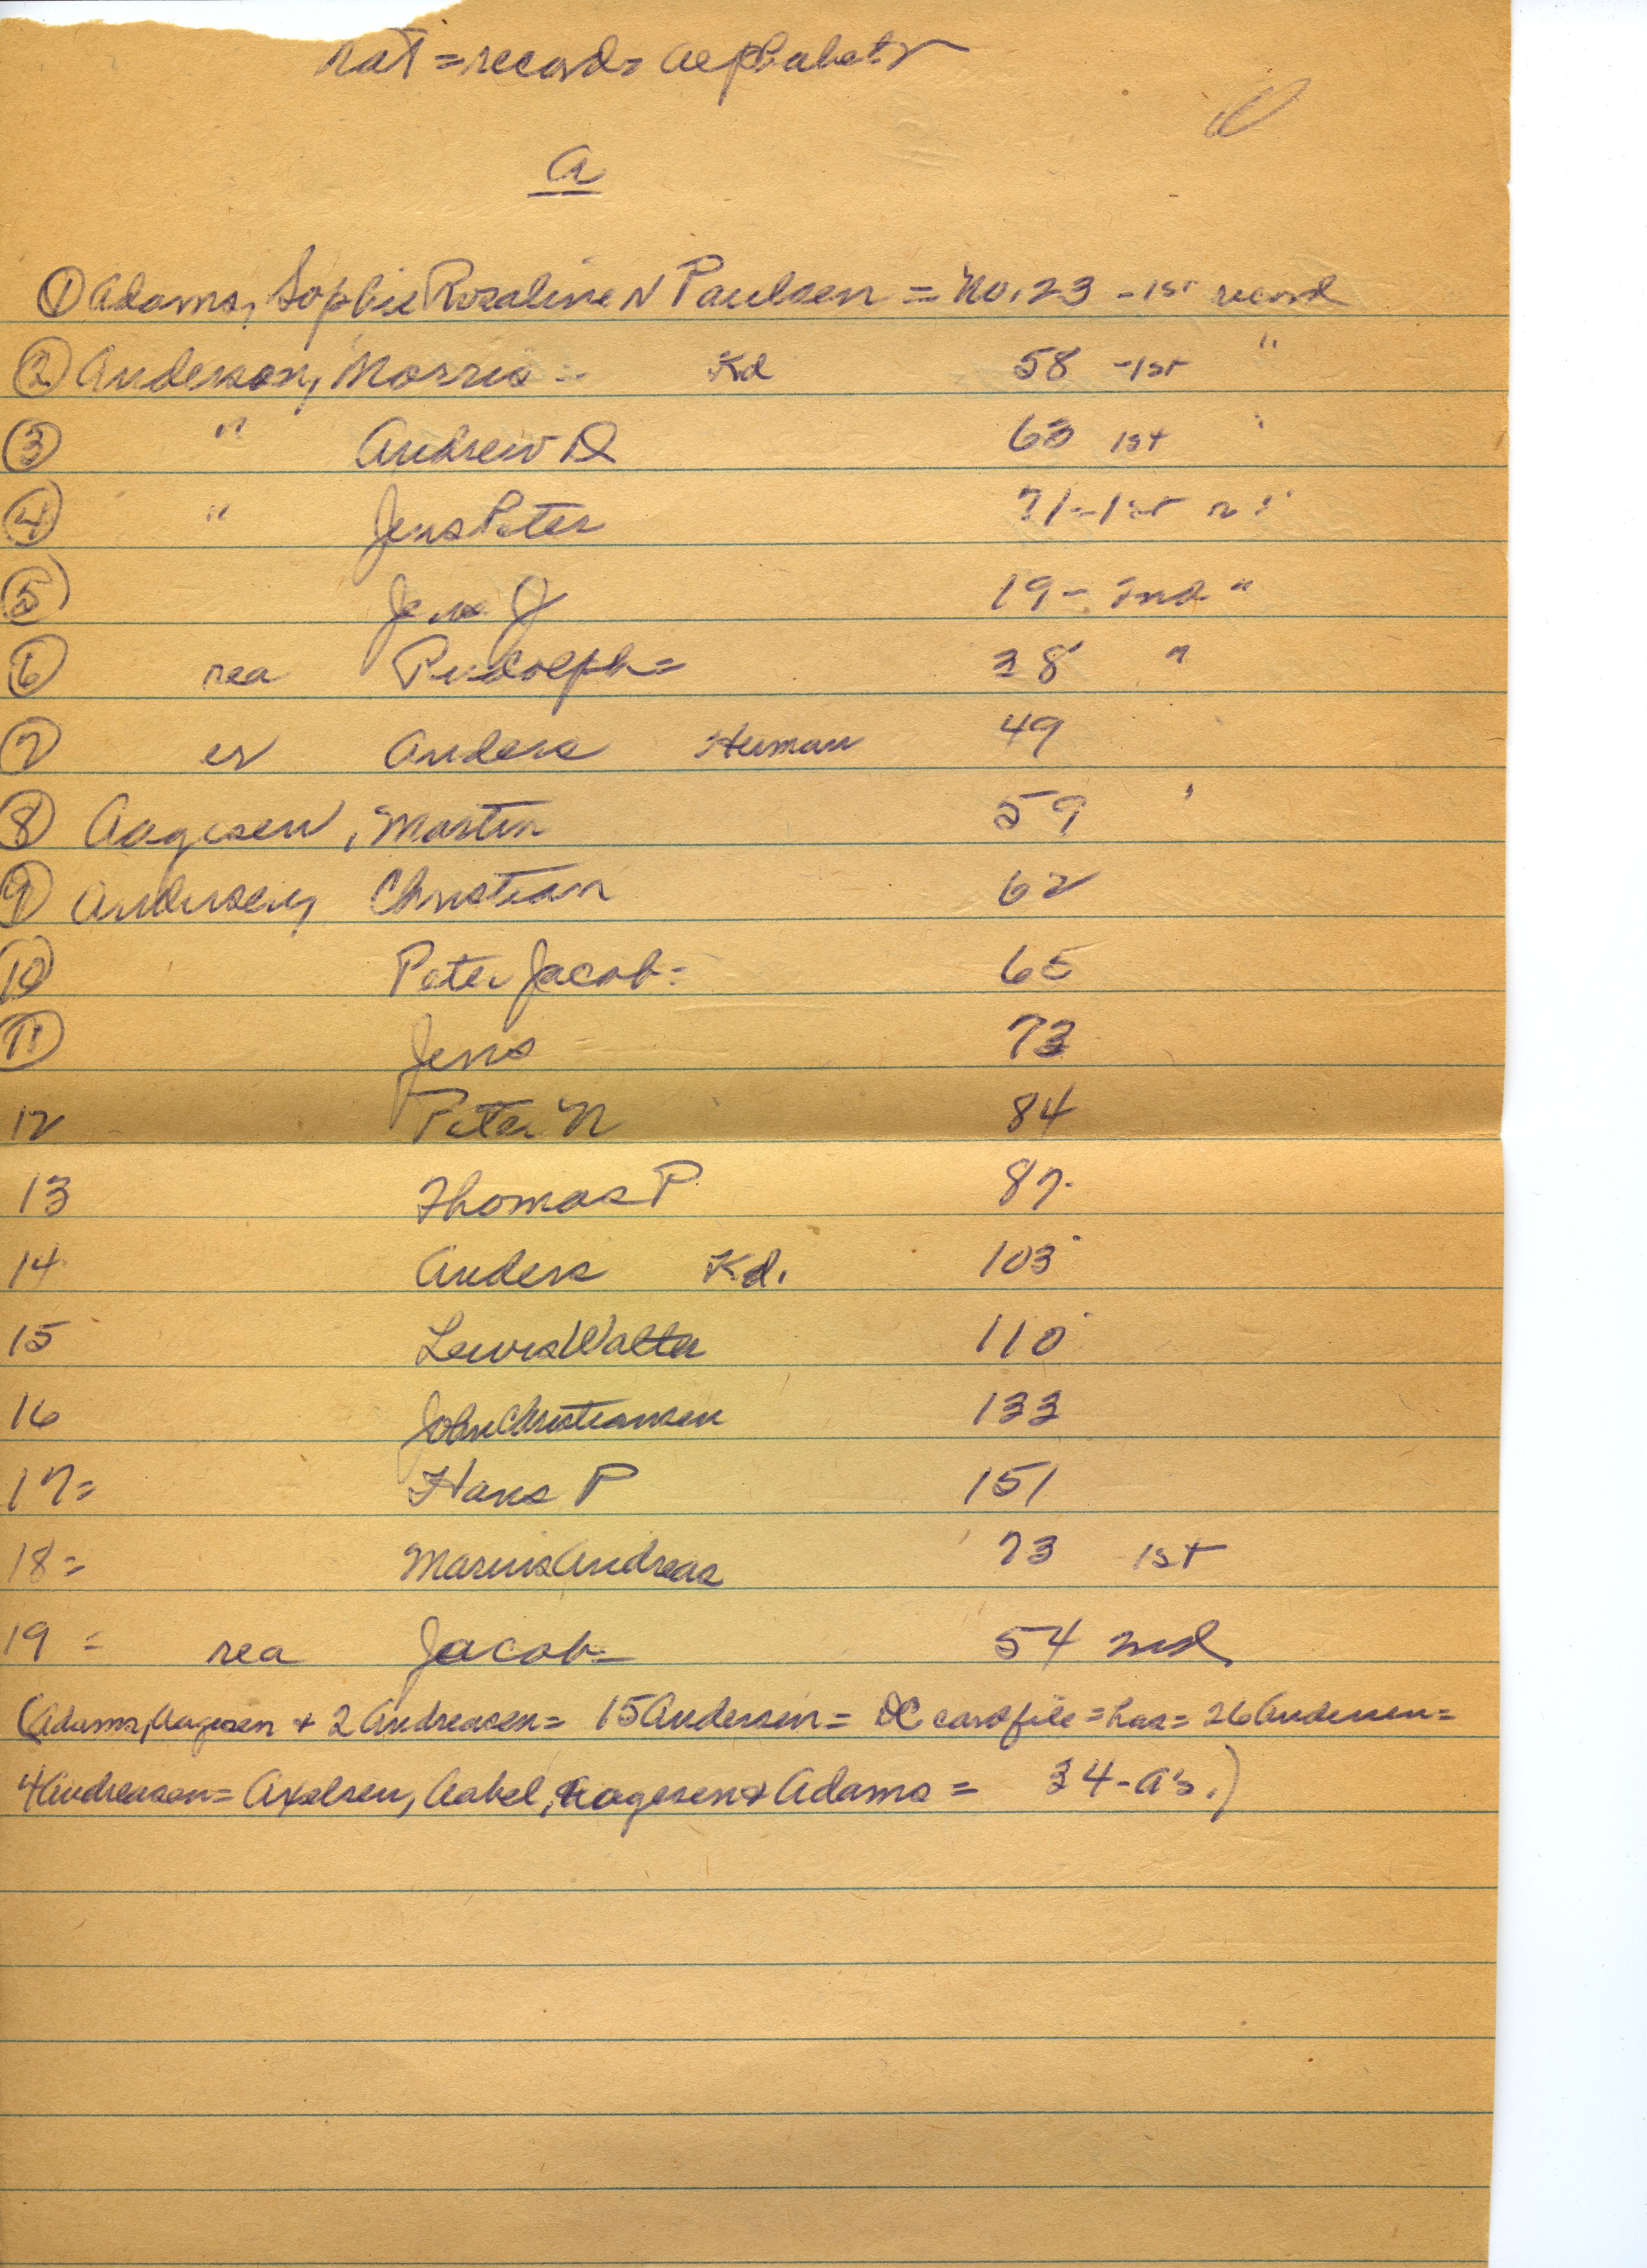 nat = record = alphabet
a
① Adams, Sophie Rosaline N Paulsen = No. 23 - 1st record
② Anderson, Morris = Kd 58 - 1st "
③ " Andrew D 63 1st "
④ " Jens Peter 71 - 1st "
⑤ Jens J 19 - 2nd "
⑥ rea Rudolph = 38 "
⑦ er Anders Herman 49
⑧ Aagesen, Martin 59 "
⑨ Andersen, Christian 62
⑩ Peter Jacob = 65
⑪ Jens 73
12 Peter N 84
13 Thomas P 87
14 Anders Kd. 103
15 Lewis Walter 110
16 John Christiansen 133
17 = Hans P 151
18 = Marius Andreas 73 1st
19 = rea Jacob = 54 2nd
(Adams, Aagesen + 2 Andreasen = 15 Andersen = DC card file = has = 26 Andersen =
4 Andreasen = Axelsen, Aabel, Aagesen & Adams = 34 - A's.)